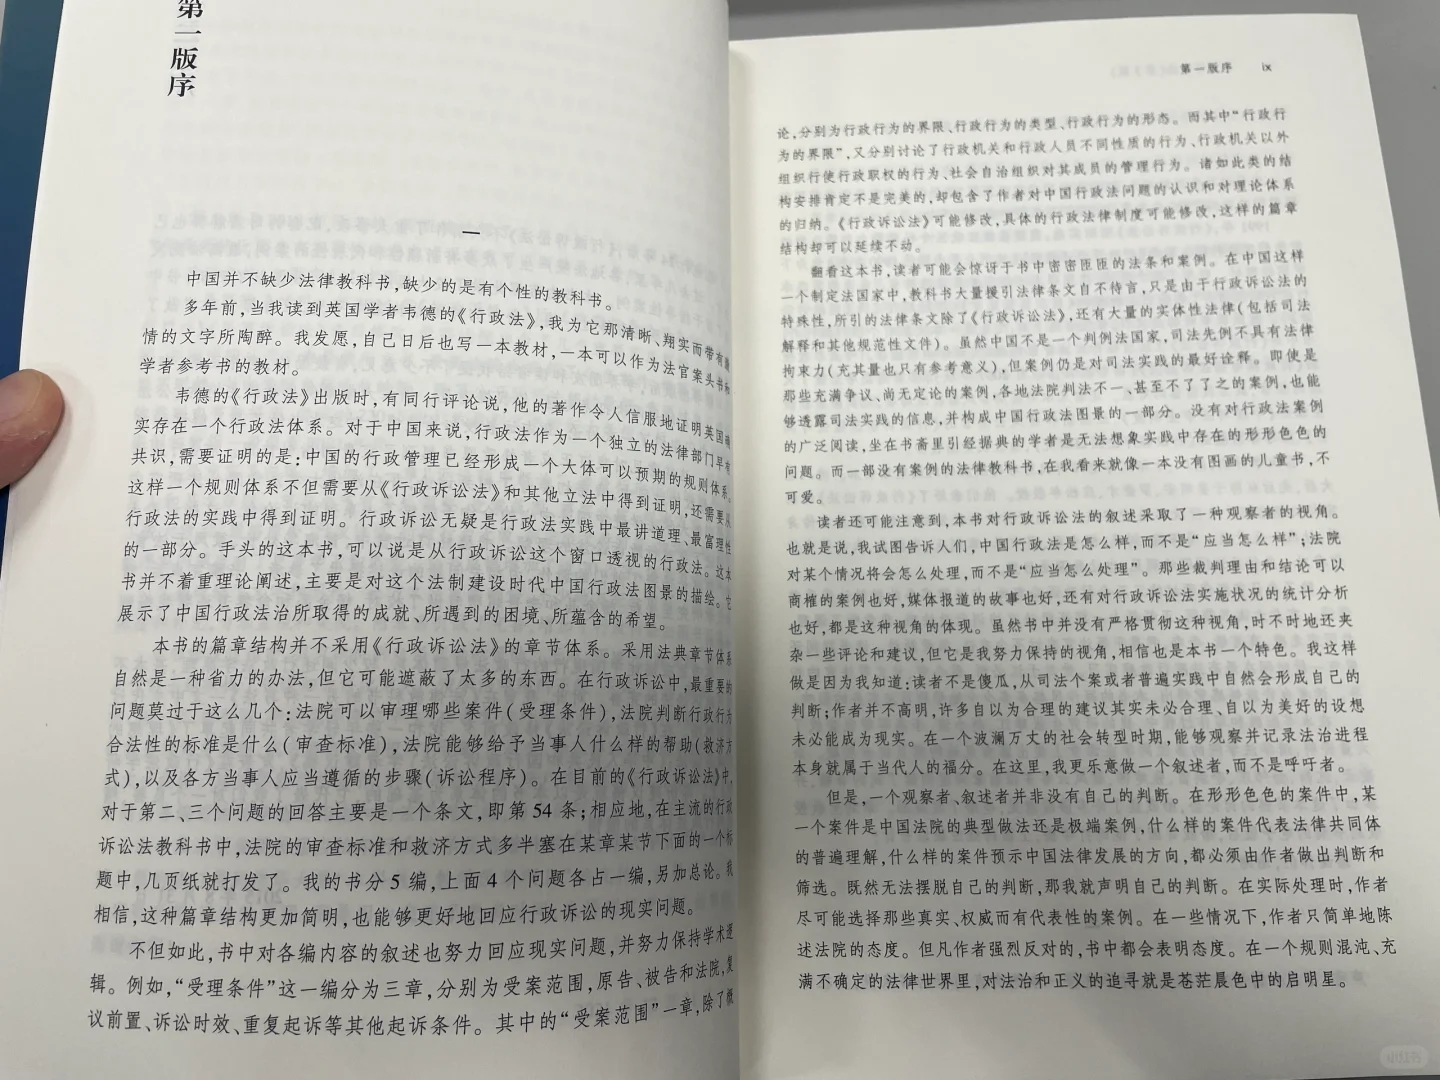 第一版序
一
中国并不缺少法律教科书,缺少的是有个性的教科书。
多年前,当我读到英国学者韦德的《行政法》,我为它那清晰、翔实而带有激
情的文字所陶醉。我发愿,自己日后也写一本教材,一本可以作为法官案头书和
学者参考书的教材。
韦德的《行政法》出版时,有同行评论说,他的著作令人信服地证明英国确
实存在一个行政法体系。对于中国来说,行政法作为一个独立的法律部门早有
共识,需要证明的是:中国的行政管理已经形成一个大体可以预期的规则体系。
这样一个规则体系不但需要从《行政诉讼法》和其他立法中得到证明,还需要从
行政法的实践中得到证明。行政诉讼无疑是行政法实践中最讲道理、最富理性
的一部分。手头的这本书,可以说是从行政诉讼这个窗口透视的行政法。这本
书并不着重理论阐述,主要是对这个法制建设时代中国行政法图景的描绘。它
展示了中国行政法治所取得的成就、所遇到的困境、所蕴含的希望。
本书的篇章结构并不采用《行政诉讼法》的章节体系。采用法典章节体系
自然是一种省力的办法,但它可能遮蔽了太多的东西。在行政诉讼中,最重要的
问题莫过于这么几个:法院可以审理哪些案件(受理条件),法院判断行政行为
合法性的标准是什么(审查标准),法院能够给予当事人什么样的帮助(救济方
式),以及各方当事人应当遵循的步骤(诉讼程序)。在目前的《行政诉讼法》中,
对于第二、三个问题的回答主要是一个条文,即第 54 条;相应地,在主流的行政
诉讼法教科书中,法院的审查标准和救济方式多半塞在某章某节下面的一个标
题中,几页纸就打发了。我的书分 5 编,上面 4 个问题各占一编,另加总论。我
相信,这种篇章结构更加简明,也能够更好地回应行政诉讼的现实问题。
不但如此,书中对各编内容的叙述也努力回应现实问题,并努力保持学术逻
辑。例如,“受理条件”这一编分为三章,分别为受案范围,原告、被告和法院,复
议前置、诉讼时效、重复起诉等其他起诉条件。其中的“受案范围”一章,除了概
第一版序 ix
论,分别为行政行为的界限、行政行为的类型、行政行为的形态。而其中“行政行
为的界限”,又分别讨论了行政机关和行政人员不同性质的行为、行政机关以外
组织行使行政职权的行为、社会自治组织对其成员的管理行为。诸如此类的结
构安排肯定不是完美的,却包含了作者对中国行政法问题的认识和对理论体系
的归纳。《行政诉讼法》可能修改,具体的行政法律制度可能修改,这样的篇章
结构却可以延续不动。
翻看这本书,读者可能会惊讶于书中密密匝匝的法条和案例。在中国这样
一个制定法国家中,教科书大量援引法律条文自不待言,只是由于行政诉讼法的
特殊性,所引的法律条文除了《行政诉讼法》,还有大量的实体性法律(包括司法
解释和其他规范性文件)。虽然中国不是一个判例法国家,司法先例不具有法律
拘束力(充其量也只有参考意义),但案例仍是对司法实践的最好诠释。即使是
那些充满争议、尚无定论的案例,各地法院判法不一、甚至不了了之的案例,也能
够透露司法实践的信息,并构成中国行政法图景的一部分。没有对行政法案例
的广泛阅读,坐在书斋里引经据典的学者是无法想象实践中存在的形形色色的
问题。而一部没有案例的法律教科书,在我看来就像一本没有图画的儿童书,不
可爱。
读者还可能注意到,本书对行政诉讼法的叙述采取了一种观察者的视角。
也就是说,我试图告诉人们,中国行政法是怎么样,而不是“应当怎么样”;法院
对某个情况将会怎么处理,而不是“应当怎么处理”。那些裁判理由和结论可以
商榷的案例也好,媒体报道的故事也好,还有对行政诉讼法实施状况的统计分析
也好,都是这种视角的体现。虽然书中并没有严格贯彻这种视角,时不时地还夹
杂一些评论和建议,但它是我努力保持的视角,相信也是本书一个特色。我这样
做是因为我知道:读者不是傻瓜,从司法个案或者普遍实践中自然会形成自己的
判断;作者并不高明,许多自以为合理的建议其实未必合理、自以为美好的设想
未必能成为现实。在一个波澜万丈的社会转型时期,能够观察并记录法治进程
本身就属于当代人的福分。在这里,我更乐意做一个叙述者,而不是呼吁者。
但是,一个观察者、叙述者并非没有自己的判断。在形形色色的案件中,某
一个案件是中国法院的典型做法还是极端案例,什么样的案件代表法律共同体
的普遍理解,什么样的案件预示中国法律发展的方向,都必须由作者做出判断和
筛选。既然无法摆脱自己的判断,那我就声明自己的判断。在实际处理时,作者
尽可能选择那些真实、权威而有代表性的案例。在一些情况下,作者只简单地陈
述法院的态度。但凡作者强烈反对的,书中都会表明态度。在一个规则混沌、充
满不确定的法律世界里,对法治和正义的追寻就是苍茫晨色中的启明星。
小红书